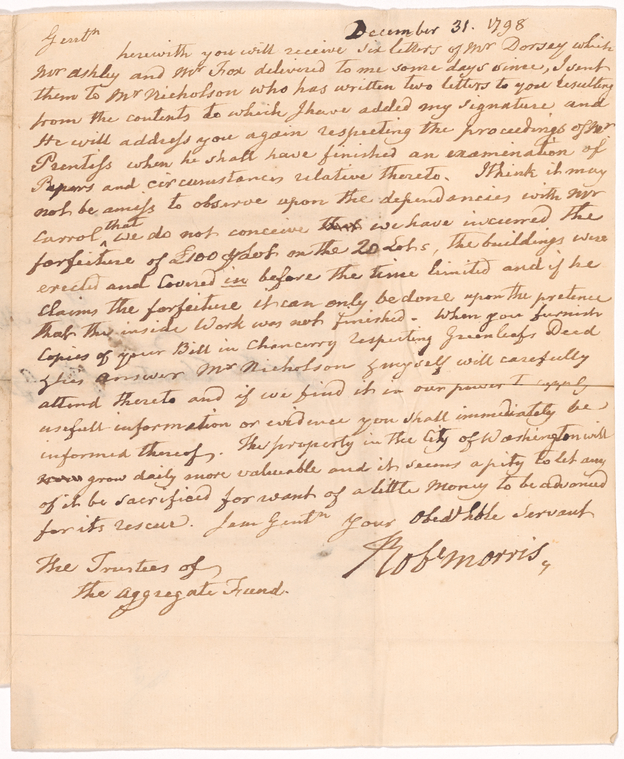 December 31. 1798
Gentn
herewith you will receive Six letters of Mr Dorsey which
Mr Ashley and Mr Fox delivered to me some days since, I sent
them to Mr Nicholson who has written two letters to you resulting
from the contents to which I have added my signature and
He will address you again respecting the proceedings of Mr
Prentiss when he shall have finished an examination of
Papers and circumstances relative thereto. I think it may
not be amiss to observe upon the dependancies with Mr
Carrol that we do not conceive that we have incurred the
forfeiture of £100 on the 20 Lots, the buildings were
erected and Covered in before the time limited and if he
claims the forfeiture it can only be done upon the pretence
that the inside Work was not finished. When you furnish
Copies of your Bill in Chancery respecting Greenleafs Deed
& his answer Mr Nicholson & myself will carefully
attend thereto and if we find it in our power to
usefull information or evidence you shall immediately be
informed thereof. The property in the City of Washington will
grow daily more valuable and it seems a pity to let any
of it be sacrificed for want of a little Money to be advanced
for its rescue. I am Gentn Your Obedt hble Servant
Robt Morris,
The Trustees of
the Aggregate Fund.